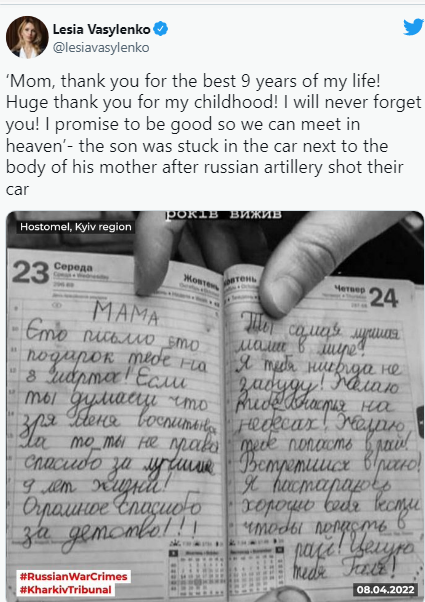 Lesia Vasylenko
@lesiavasylenko
‘Mom, thank you for the best 9 years of my life!
Huge thank you for my childhood! I will never forget
you! I promise to be good so we can meet in
heaven’- the son was stuck in the car next to the
body of his mother after russian artillery shot their
car
років вижив
Hostomel, Kyiv region
23 Середа
Жовтень
Четвер 24
МАМА
Ето письмо ето
подарок тебе на
8 марта! Если
ты думаеш что
зря меня воспитыва
ла то ты не права
спасибо за лучшие
9 лет жизни!
Огромное спасибо
за детство!!!
Ты самая лучшая
мама в мире!
Я тебя никогда не
забуду! Желаю
тебе счастия на
небесах! Желаю
тебе попасть в рай!
Встретимся в раю!
Я постараюсь
хорошо себя вести
чтобы попасть в
рай! Целую
тебя
#RussianWarCrimes
#KharkivTribunal
08.04.2022